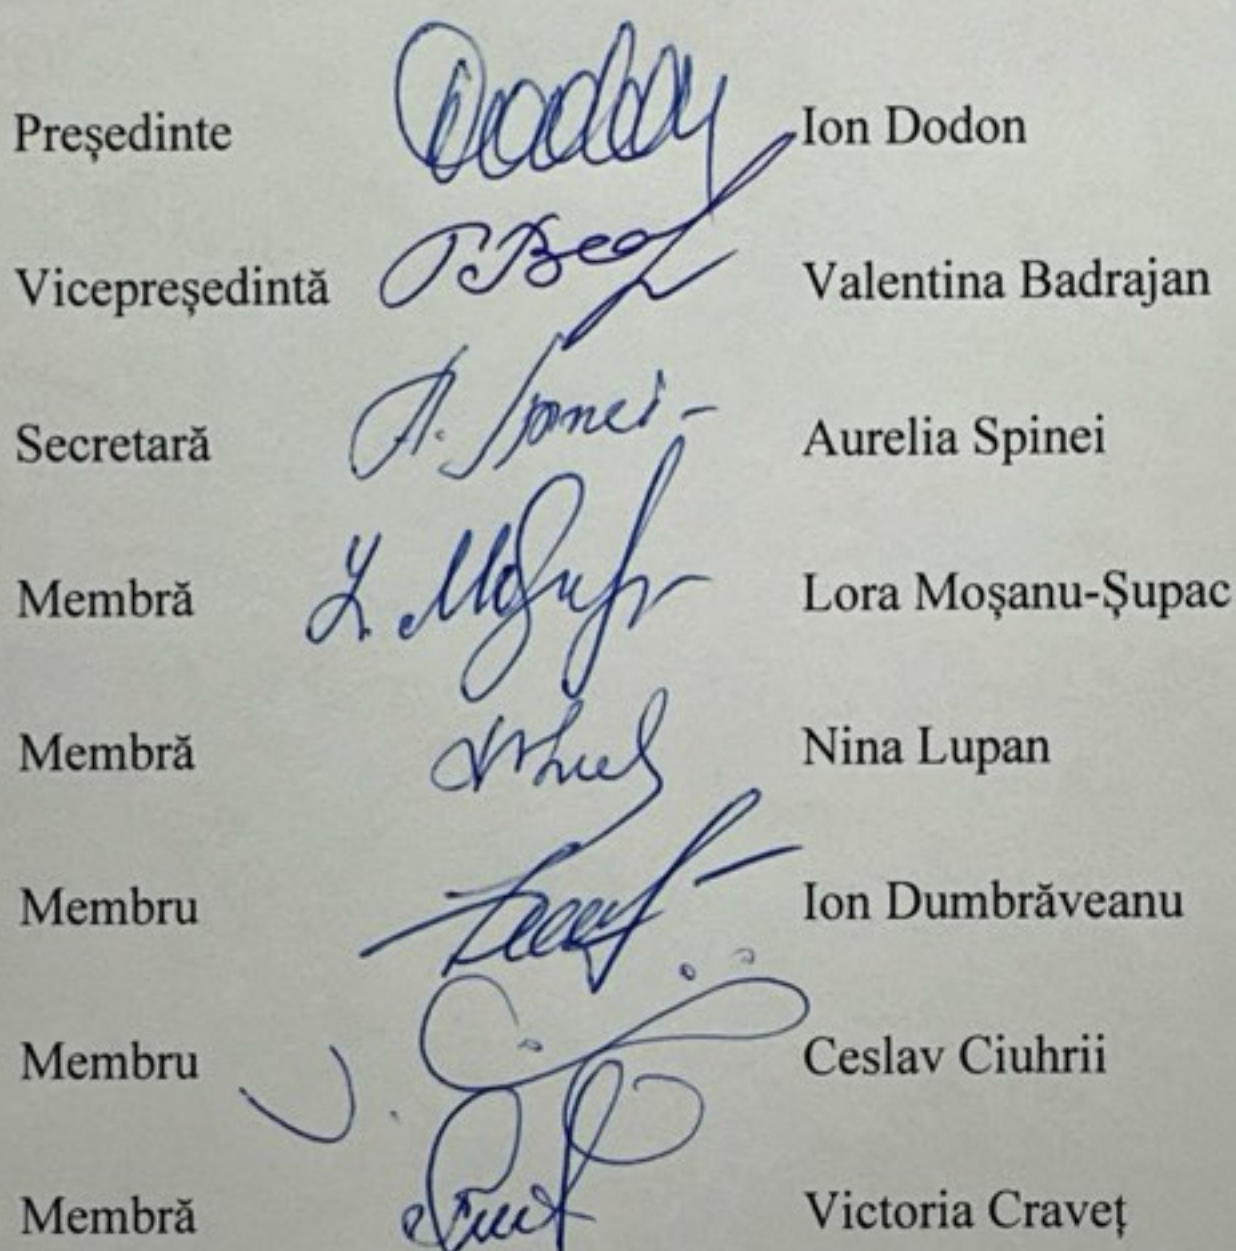 Președinte Dodon Ion Dodon
Vicepreședintă Valentina Badrajan
Secretară A. Spinei Aurelia Spinei
Membră Lora Moșanu-Șupac
Membră Nina Lupan
Membru Ion Dumbrăveanu
Membru Ceslav Ciuhrii
Membră Victoria Craveț